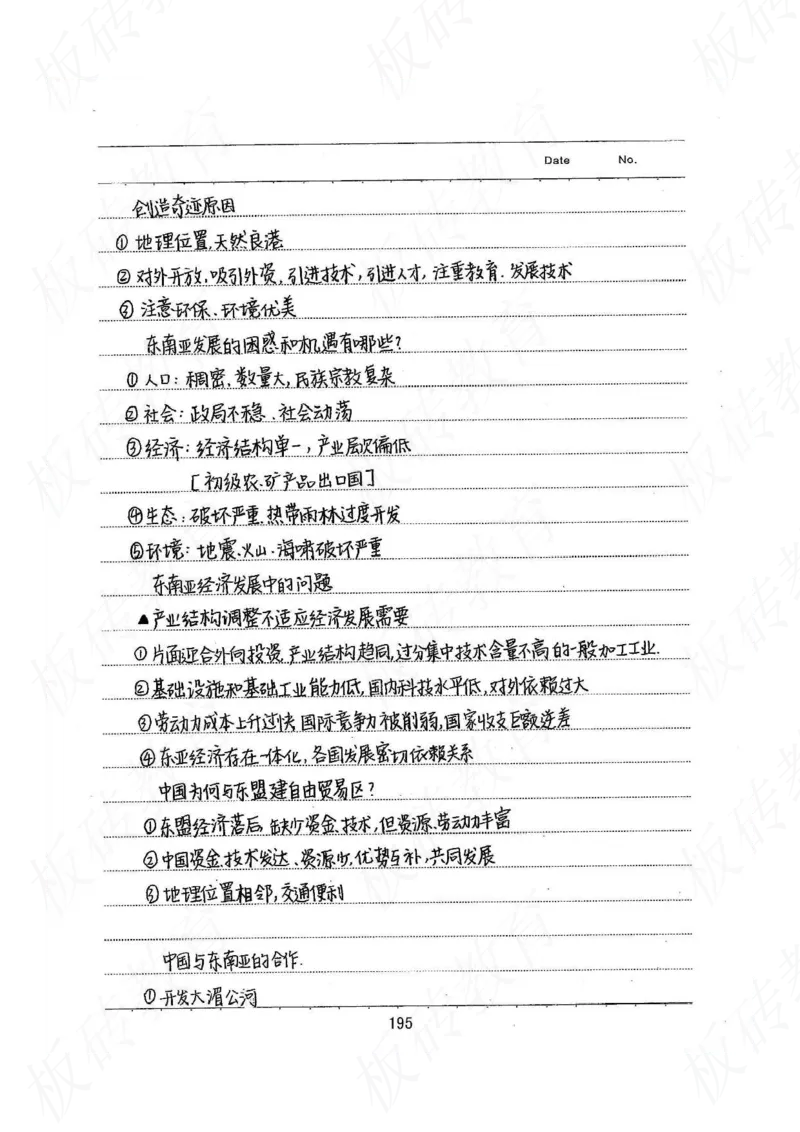 Date No.
创造奇迹原因
① 地理位置,天然良港
② 对外开放,吸引外资,引进技术,引进人才,注重教育.发展技术
③ 注意环保、环境优美
东南亚发展的困惑和机遇有哪些?
① 人口:稠密、数量大,民族宗教复杂
② 社会:政局不稳、社会动荡
③ 经济:经济结构单一,产业层次偏低
[初级农、矿产品出口国]
④ 生态:破坏严重、热带雨林过度开发
⑤ 环境:地震、火山、海啸破坏严重
东南亚经济发展中的问题
▲产业结构调整不适应经济发展需要
① 片面迎合外向投资,产业结构趋同,过分集中技术含量不高的一般加工工业.
② 基础设施和基础工业能力低,国内科技水平低,对外依赖过大
③ 劳动力成本上升过快,国际竞争力被削弱,国家收支巨额逆差
④ 东亚经济存在一体化,各国发展密切依赖关系
中国为何与东盟建自由贸易区?
① 东盟经济落后,缺少资金、技术,但资源、劳动力丰富
② 中国资金、技术发达、资源少,优势互补,共同发展
③ 地理位置相邻,交通便利
中国与东南亚的合作.
① 开发大湄公河
195
板砖教育